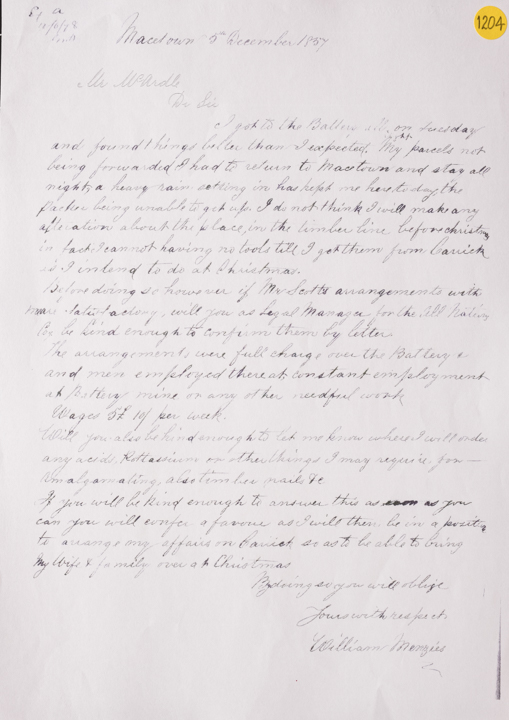 1204
Macetown 5th December 1857
Mr McArdle
Dr Sir
I got to the Battery all right on Tuesday
and found things better than I expected. My parcels not
being forwarded I had to return to Macetown and stay all
night, a heavy rain setting in has kept me here to day, the
Packer being unable to get up. I do not think I will make any
alteration about the place, in the timber line before christmas
in fact I cannot having no tools till I get them from Carrick
as I intend to do at Christmas.
Before doing so however if Mr Scotts arrangements with
me are satisfactory, will you as Legal Manager for the All Nations
Co be kind enough to confirm them by letter
The arrangements were full charge over the Battery &
and men employed thereat, constant employment
at Battery mine or any other needful work
Wages £5 10/ per week.
Will you also be kind enough to let me know where I will order
any acid, Pottassium or other things I may require for
Amalgamating, also timber, nails &c
If you will be kind enough to answer this as soon as you
can you will confer a favour as I will then be in a position
to arrange my affairs on Carrick so as to be able to bring
My Wife & family over at Christmas
By doing so you will oblige
Yours with respect
William Menzies